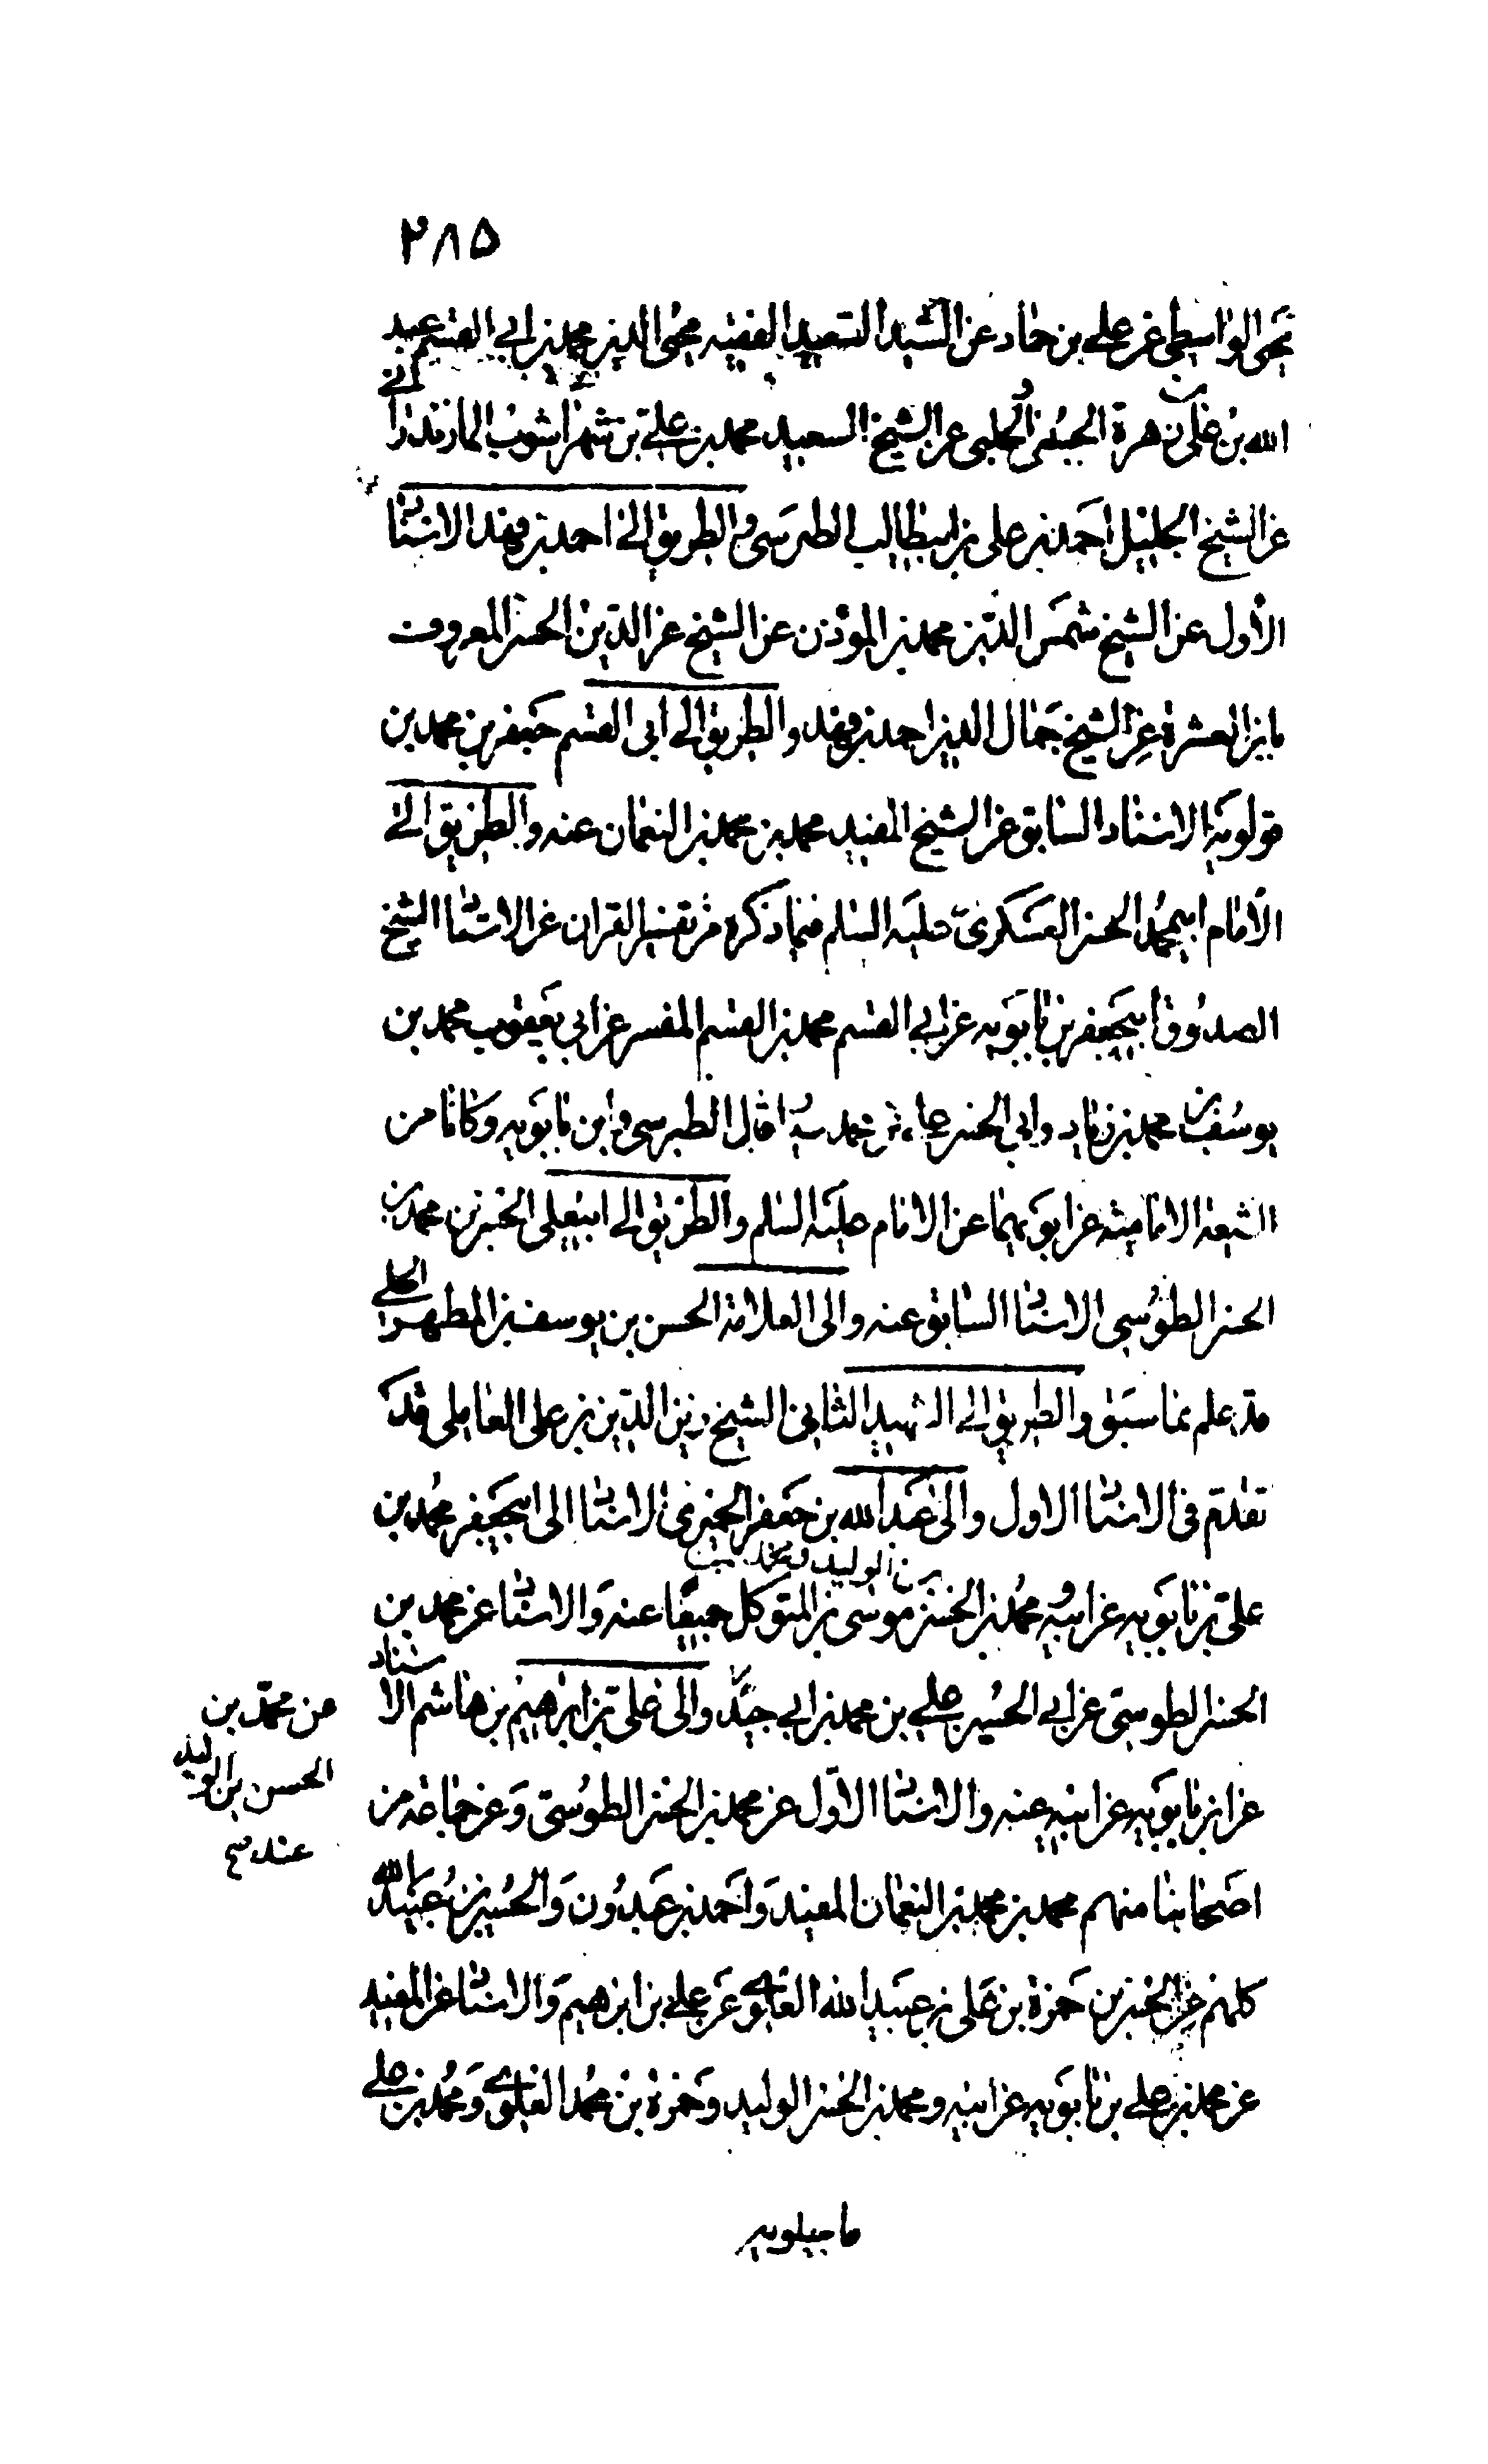 ٢٨٥
يحيى الواسطي عن علي بن حماد عن السيد السعيد الفقيه محيي الدين محمد بن ابي القسم عبد
الله بن علي بن زهرة الحسيني الحلبي عن الشيخ السعيد محمد بن علي بن شهراشوب المازندراني
عن الشيخ الجليل احمد بن علي بن ابيطالب الطبرسي والطريق الى احمد بن فهد الاسناد
الأول عن الشيخ شمس الدين محمد بن المؤذن عن الشيخ عز الدين الحسن المعروف
بابن العشرة عن الشيخ جمال الدين احمد بن فهد والطريق الى ابي القسم جعفر بن محمد بن
قولويه الاسناد السابق عن الشيخ المفيد محمد بن محمد بن النعمان عنه والطريق الى
الأمام ابيمحمد الحسن العسكري عليه السلم فيما ذكره من تفسير القران عن الاسناد الشيخ
الصدوق ابيجعفر بن بابويه عن ابي القسم محمد بن القسم المفسر عن ابي يعقوب يوسف محمد بن
يوسف بن محمد بن زياد وابي الحسن علي بن محمد بن سيار قال الطبرسي وابن بابويه وكانا من
الشيعة الامامية عن ابويهما عن الامام عليه السلم والطريق الى ابيعلي الحسن بن محمد بن
الحسن الطوسي الاسناد السابق عنه والى العلامة الحسن بن يوسف بن المطهر الحلي
قد علم مما سبق والطريق الى الشهيد الثاني الشيخ زين الدين بن علي العاملي قد
تقدم في الاسناد الاول والى عبد الله بن جعفر الحميري الاسناد الى ابيجعفر محمد بن
علي بن بابويه عن ابيه ومحمد بن الحسن بن الوليد ومحمد بن موسى بن المتوكل جميعا عنه والاسناد عن محمد بن
الحسن الطوسي عن ابي الحسين علي بن محمد بن ابي جيد عن محمد بن الحسن بن الوليد عنه صح والى علي بن ابرهيم بن هاشم الاسناد
عن ابن بابويه عن ابيه عنه والاسناد الأول عن محمد بن الحسن الطوسي وعن جماعة من
اصحابنا منهم محمد بن محمد بن النعمان المفيد واحمد بن عبدون والحسين بن عبيد الله
كلهم عن الحسن بن حمزة بن علي بن عبيد الله العلوي عن علي بن ابرهيم والاسناد عن المفيد
عن محمد بن علي بن بابويه عن ابيه ومحمد بن الحسن الوليد وحمزة بن محمد العلوي ومحمد بن علي
ماجيلويه